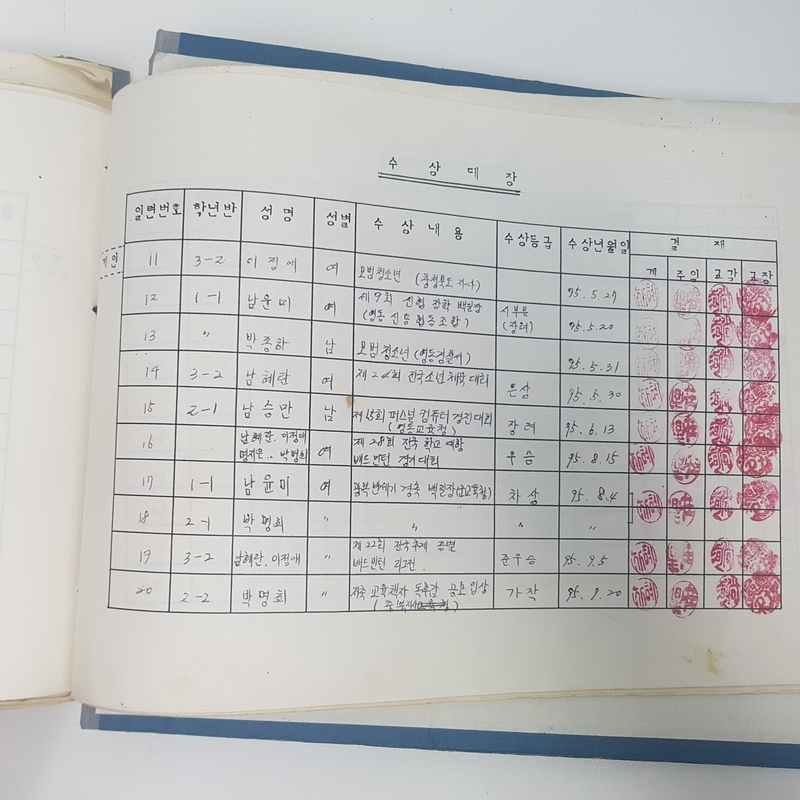 수 상 대 장
일련번호 학년반 성 명 성별 수 상 내 용 수상등급 수상년월일 결 재
계 주임 교감 교장
개인
11 3-2 이정애 여 모범청소년 (충청북도지사) 95.5.27
12 1-1 남윤미 여 제9회 신협 장학 백일장 시부문
(영동 신용협동조합) (장려) 95.5.20
13 〃 박종하 남 모범청소년 (영동경찰서) 95.5.31
14 3-2 남혜란 여 전국소년체육대회 은상 95.5.30
15 2-1 남승만 남 제15회 퍼스널 컴퓨터 경진대회 장려 95.6.13
(영동교육청)
16 남혜란. 이정애 여 제28회 전국 학교 대항 우승 95.8.15
박명희 배드민턴 대회
17 1-1 남윤미 여 광복 경축 백일장 차상 95.8.4
18 2-1 박명희 〃 〃 〃 〃
19 3-2 남혜란. 이정애 〃 제22회 전국추계 종별 준우승 95.9.5
배드민턴
20 2-2 박명희 〃 저축 독후감 공모 입상 가작 95.9.20